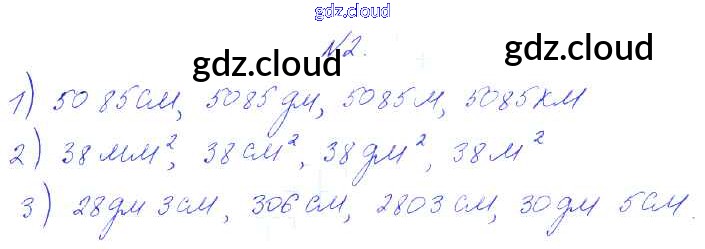 gdz.cloud
№2.
gdz.cloud gdz.cloud
1) 5085см, 5085дм, 5085м, 5085км
2) 38мм², 38см², 38дм², 38м²
3) 28дм 3см, 306см, 2803см, 30дм 5см.
gdz.cloud gdz.cloud